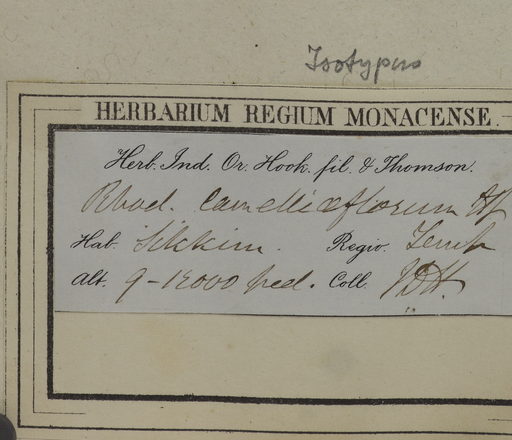 Isotypus
HERBARIUM REGIUM MONACENSE.
Herb. Ind. Or. Hook. fil. & Thomson.
Rhod. Camelliæflorum Hf
Hab. Sikkim. Regio. Temp
Alt. 9-12000 ped. Coll. J.D.H.